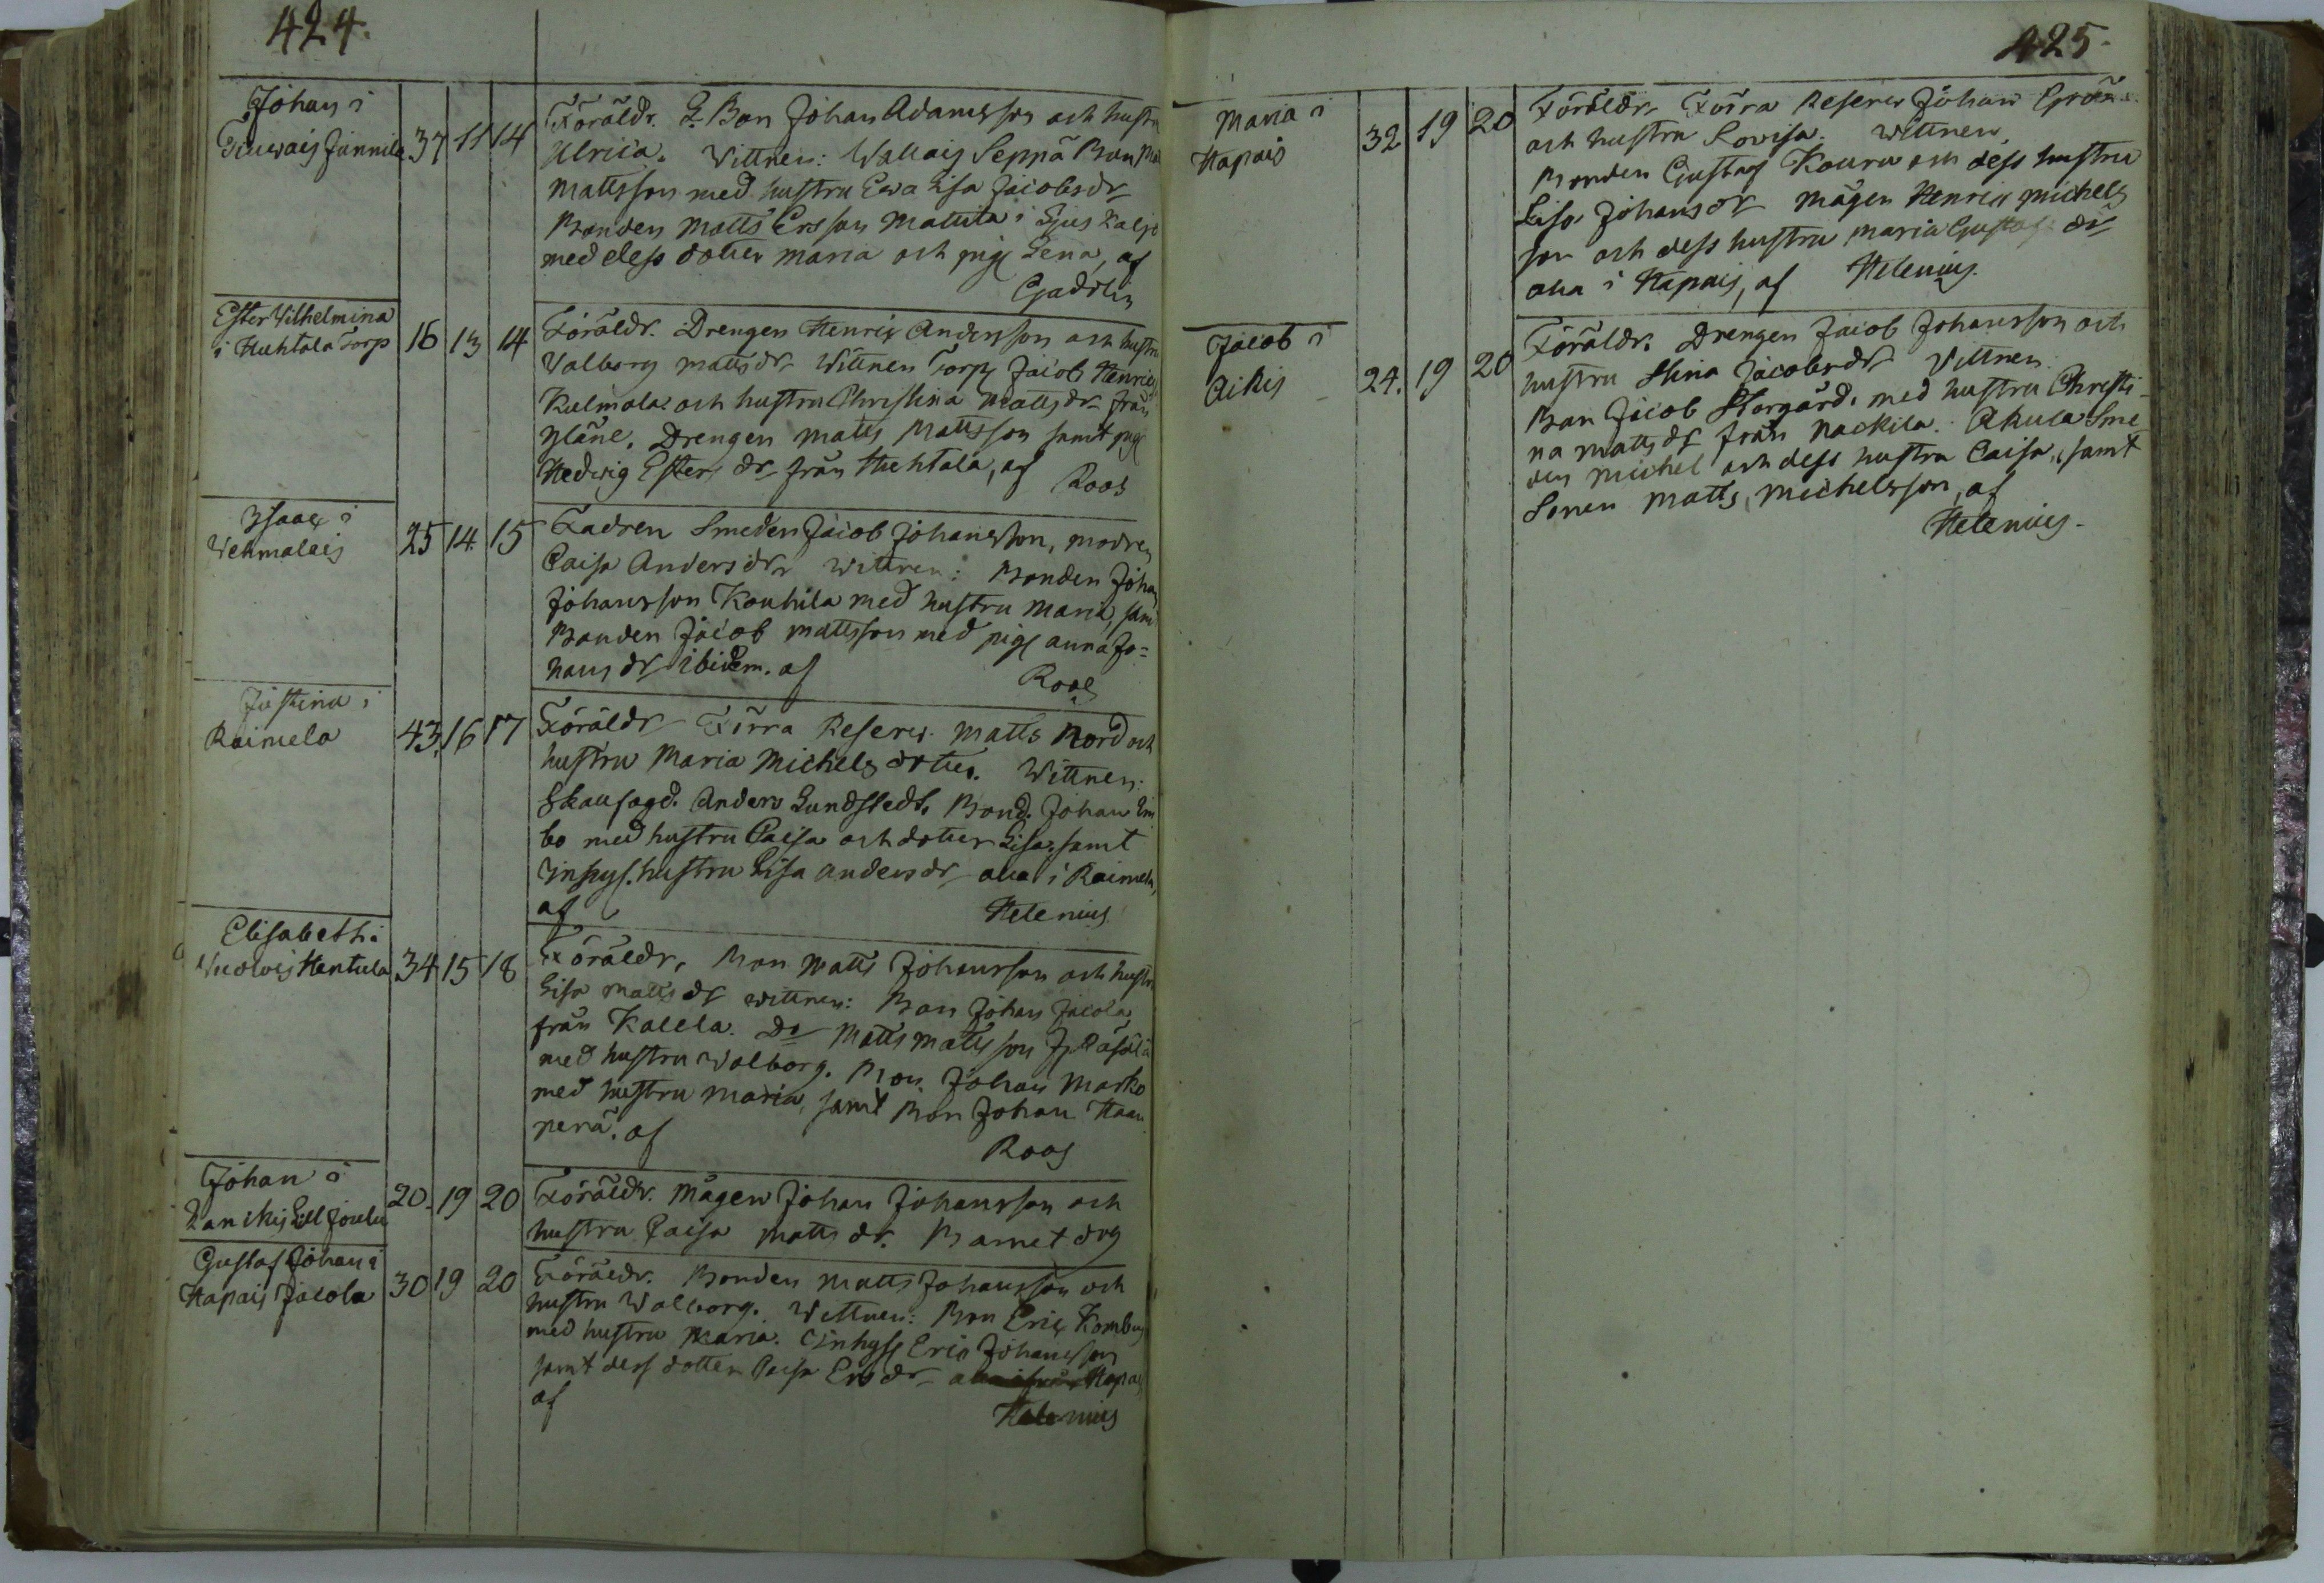 424.
Johan i
Junnila 37 11 14 Föräldr. Bon Johan Adamsson och hustru
Ulrica. Vittnen: Wallais Seppä Bon
Mattsson med hustru Ewa Lisa Jacobsdr
Bonden Matts Ersson Mattila i
med dess dotter Maria och pig Lena, af
Gadolin
Ester Vilhelmina
i Huhtala Torp 16 13 14 Föräldr. Drengen Henric Andersson och hustru
Valborg Mattsdr. Wittnen Torp Jacob Henrics
Kulmala och hustru Christina Mattsdr från
Yläne. Drengen Matts Mattsson samt pig
Hedvig Esters dr från Huhtala, af Roos
Isaac i
Vehmalais 25 14 15 Fadren Smeden Jacob Johansson, modren
Caisa Andersdr Wittnen: Bonden Johan
Johansson Kouhila med hustru Maria, samt
Bonden Jacob Mattsson med pig Anna Jo=
hans dr ibidem. af Roos
Justina i
Raimela 43. 16 17 Föräldr Förra Reserv. Matts Nord och
hustru Maria Michels dotter. Wittnen:
Skaufogd. Anders Lundstedt, Bond. Johan
bo med hustru Caisa och dotter Lisa, samt
Inhys. hustru Lisa Andersdr alla i Raimela,
af Helenius
Elisabeth i
Hentula 34 15 18 Föräldr, Bon Matts Johansson och hustru
Lisa Matts dr Wittnen: Bon Johan Jacola
från Kalela. Do Matts Mattsson
med hustru Walborg. Bon. Johan Marko
med hustru Maria, samt Bon Johan Haan
perä. af Roos
Johan i
20. 19 20 Föräldr. Mågen Johan Johansson och
hustru Caisa Matts dr. Barnet dog
Gustaf Johan i
Hapais Jacola 30 19 20 Föräldr. Bonden Matts Johansson och
hustru Walborg. Wittnen: Bon Eric
med hustru Maria. Inhys Eric Johansson
samt dess dotter Caisa Ersdr Hapais
af Helenius
425.
Maria i
Hapais 32 19 20 Föräldr, Förra Reserv Johan
och hustru Lovisa. Wittnen.
Bonden Gustaf Kouru och dess hustru
Lisa Johansdr Mågen Henric Michels
son och dess hustru Maria Gustafs dr
alla i Hapais, af Helenius.
Jacob i
24. 19 20 Föräldr. Drengen Jacob Johansson och
hustru Stina Jacobsdr Vittnen:
Bon Jacob Storgård. med hustru Christi-
na Matts dr från Nackila. Akula Sme-
den Michel och dess hustru Caisa, samt
Sonen Matts Michelsson, af
Helenius.